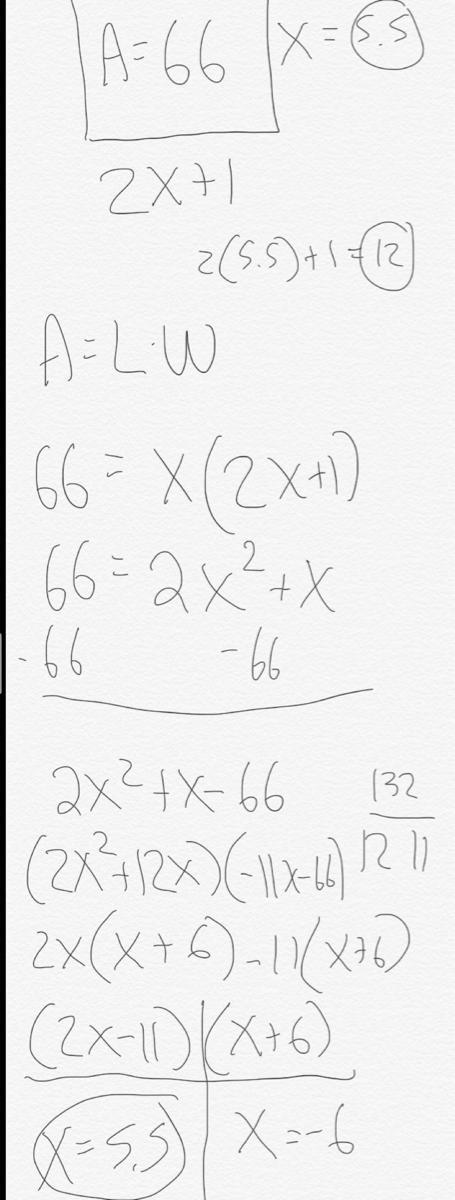 A=66 X=5.5
2X+1
2(5.5)+1=12
A=L·W
66=X(2X+1)
66=2X²+X
-66 -66
2X²+X-66 132
(2X²+12X)(-11X-66) 12 11
2X(X+6)-11(X+6)
(2X-11)(X+6)
X=5.5 X=-6